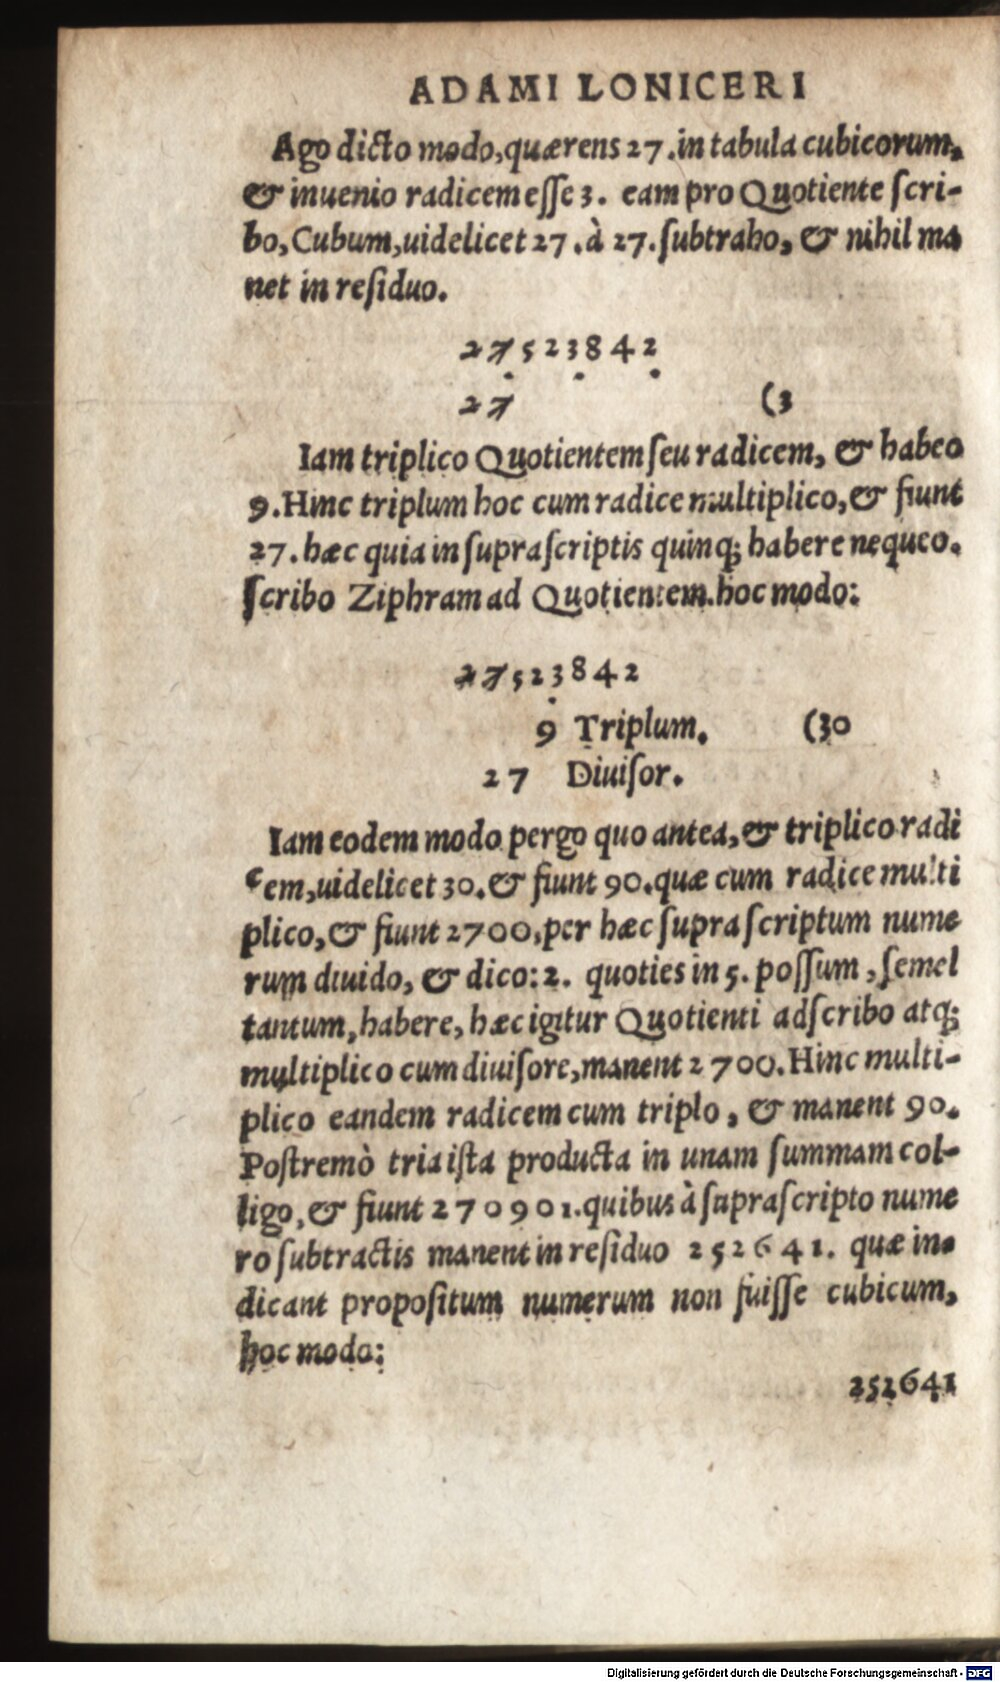 ADAMI LONICERI
Ago dicto modo, quærens 27. in tabula cubicorum,
& inuenio radicem eſſe 3. eam pro Quotiente ſcri-
bo, Cubum, uidelicet 27. à 27. ſubtraho, & nihil ma
net in reſiduo.
27523842
27 (3
Iam triplico Quotientem ſeu radicem, & habeo
9. Hinc triplum hoc cum radice multiplico, & fiunt
27. hæc quia in ſupraſcriptis quinq; habere nequeo.
ſcribo Ziphram ad Quotientem. hoc modo:
27523842
9 Triplum. (30
27 Diuiſor.
Iam eodem modo pergo quo antea, & triplico radi
cem, uidelicet 30. & fiunt 90. quæ cum radice multi
plico, & fiunt 2700, per hæc ſupra ſcriptum nume
rum diuido, & dico: 2. quoties in 5. poſſum, ſemel
tantum, habere, hæc igitur Quotienti adſcribo atq;
multiplico cum diuiſore, manent 2700. Hinc multi-
plico eandem radicem cum triplo, & manent 90.
Poſtremò tria iſta producta in unam ſummam col-
ligo, & fiunt 270901. quibus à ſupraſcripto nume
ro ſubtractis manent in reſiduo 252641. quæ in-
dicant propoſitum numerum non fuiſſe cubicum,
hoc modo:
252641
Digitalisierung gefördert durch die Deutsche Forschungsgemeinschaft - DFG